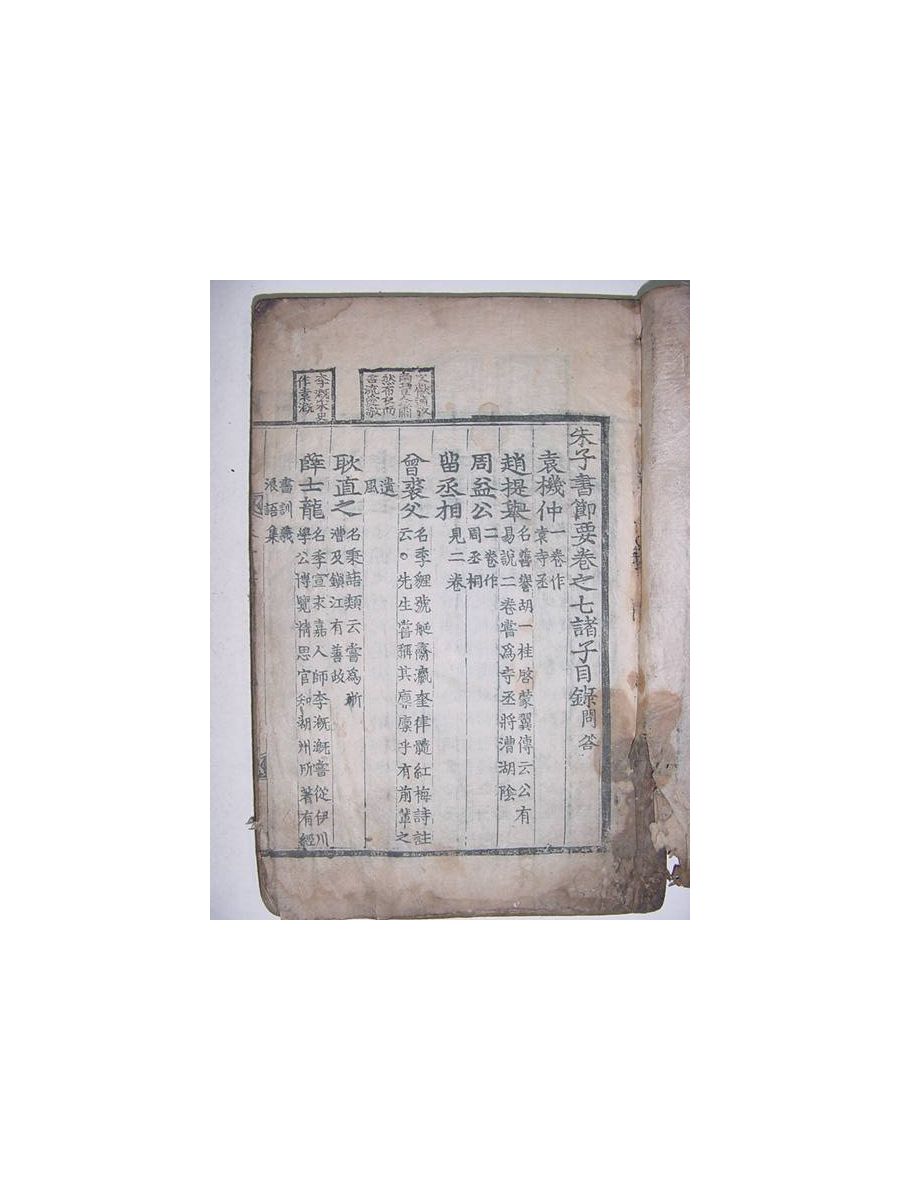 朱子書節要卷之七諸子目錄問答
袁機仲一卷作袁寺丞
趙提舉名善譽胡一桂啓蒙翼傳云公有易說二卷嘗爲寺丞將漕湖陰
周益公二卷作周丞相
留丞相見二卷
曾裘父名季貍號艇齋瀛奎律髓紅梅詩註云〇先生嘗稱其廩廩乎有前輩之
遺風
耿直之名秉語類云嘗爲浙漕及鎭江有善政
薛士龍名季宣永嘉人師李漑漑嘗從伊川學公博覽精思官知湖州所著有經
書訓義浪語集
李漑宋史
作袁漑